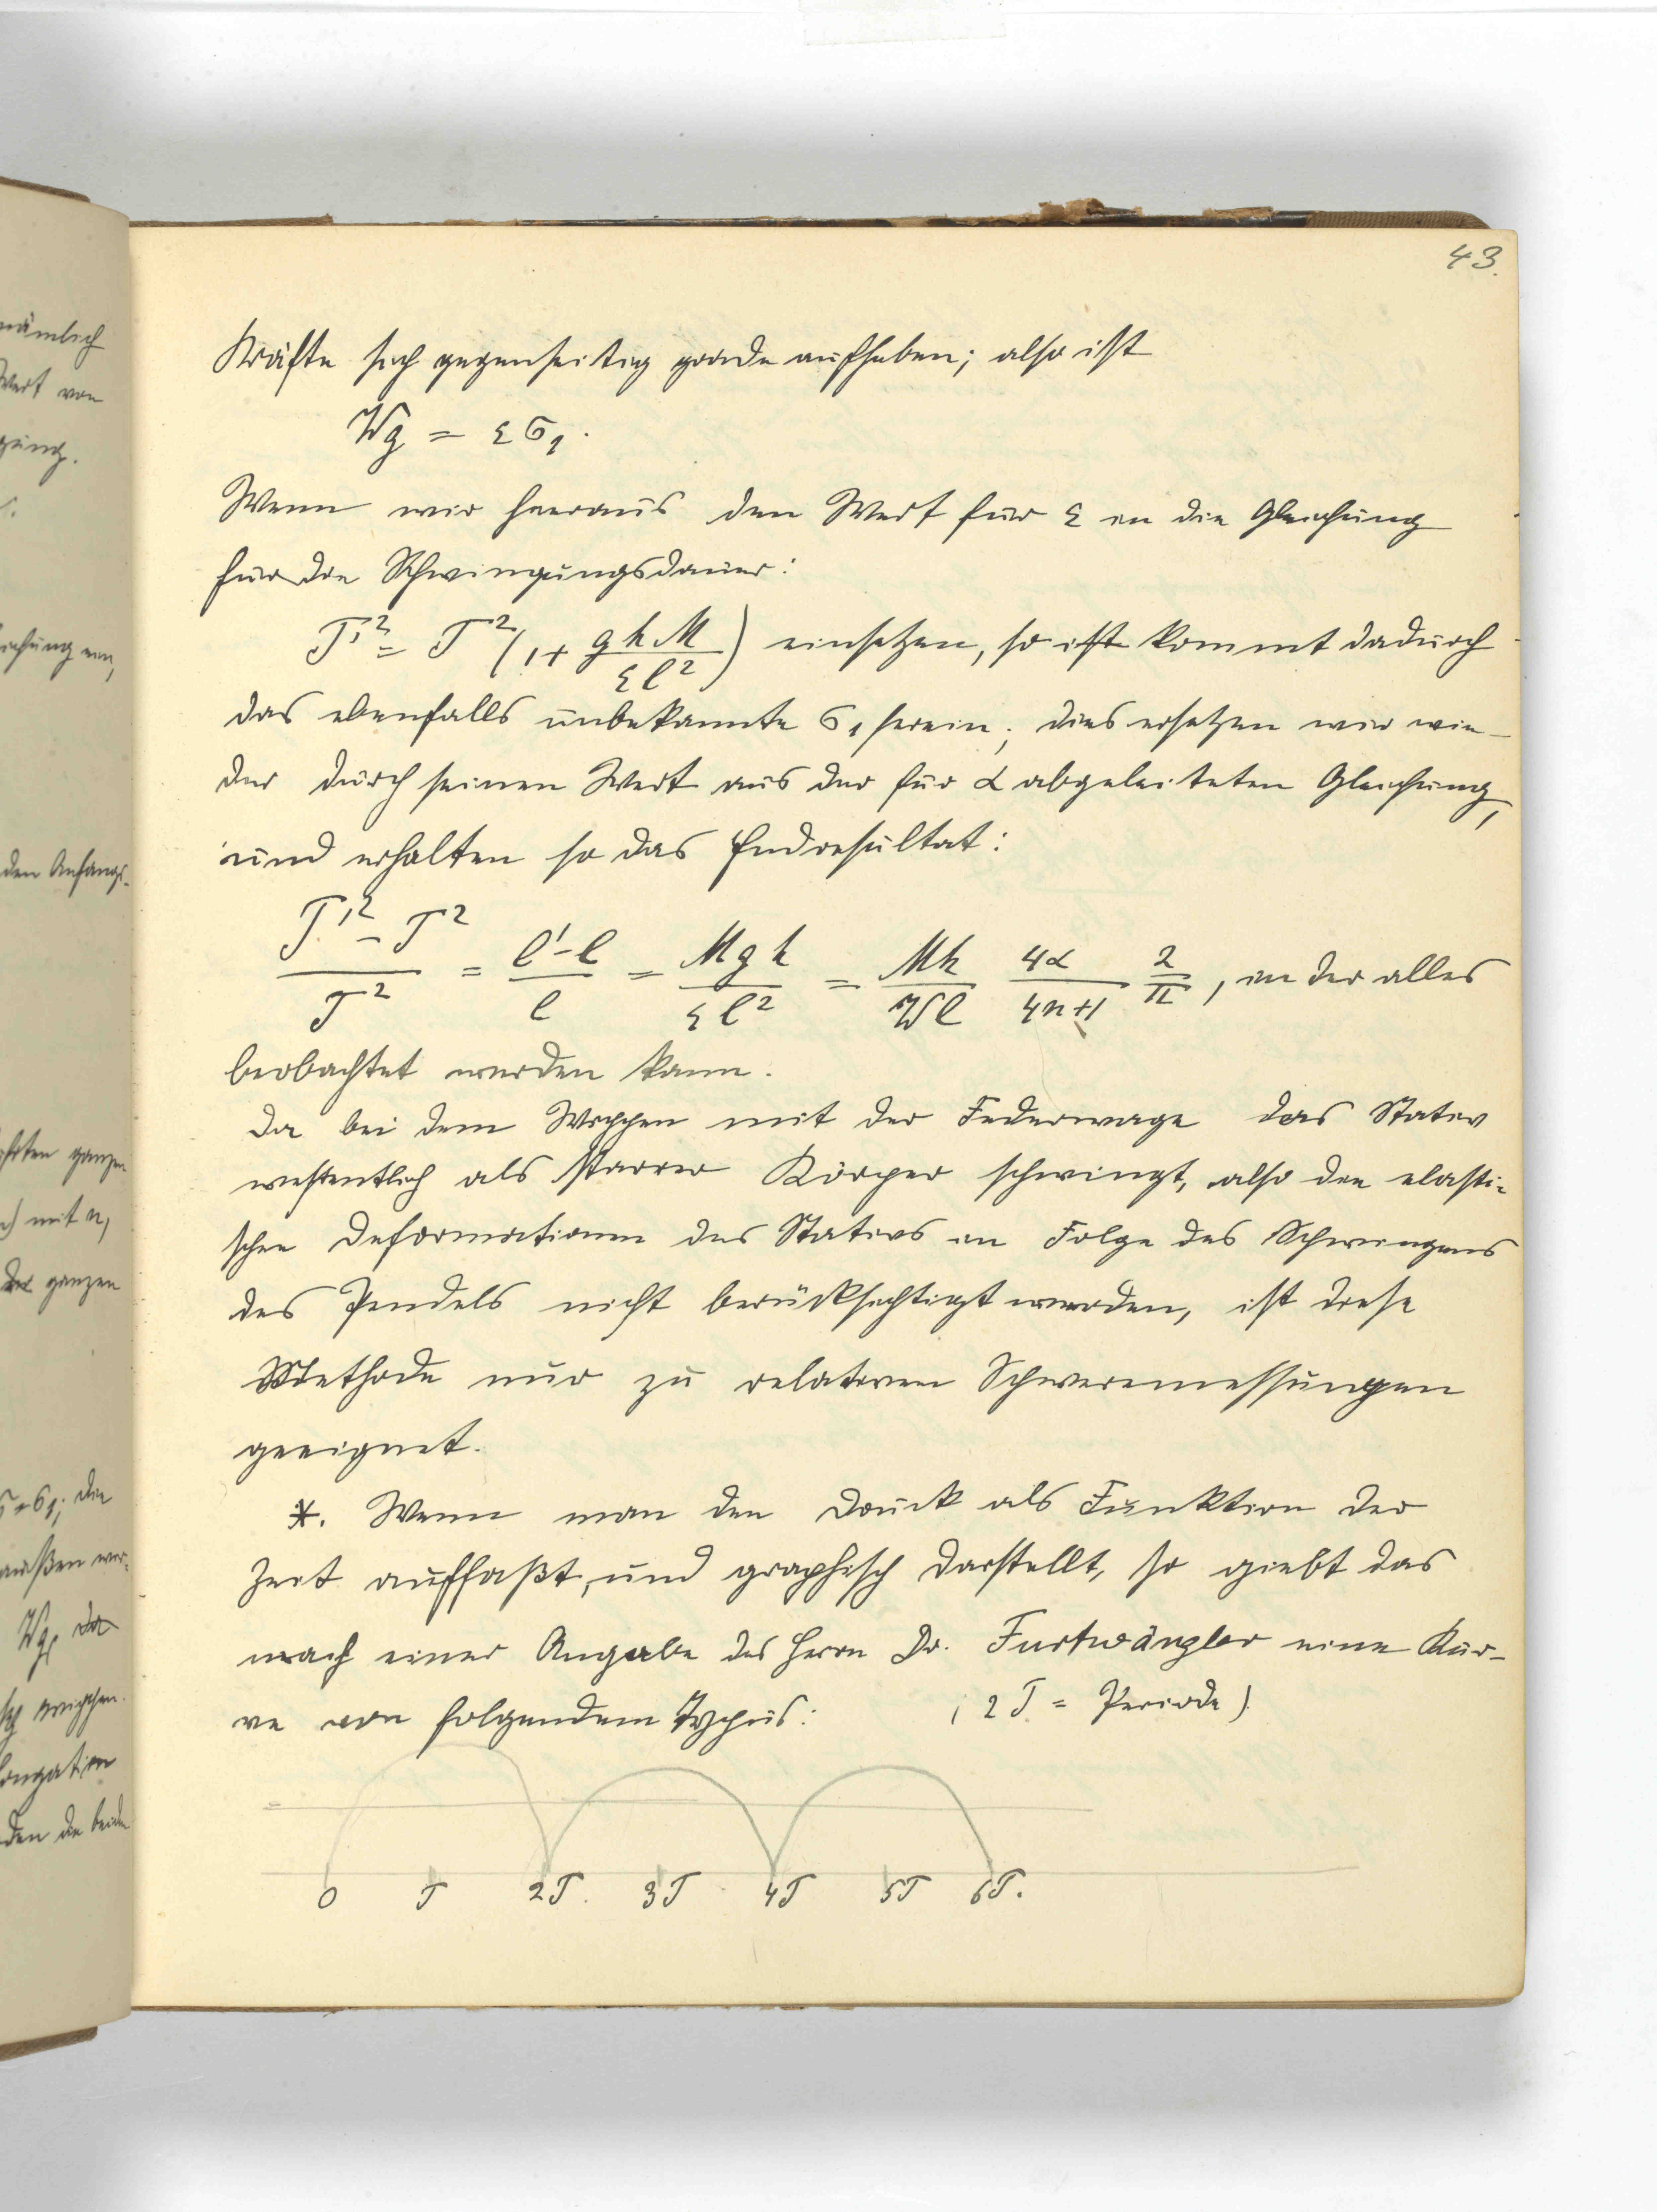 43.
nämlich
Wert von
gung.
chung ein,
den Anfangs-
ganzen
mit n,
ganzen
σ1; die
maßen wer-
Wg,
wippen.
longation
den die beiden
Kräfte sich gegenseitig grade aufheben; also ist
Wg = εσ1.
Wenn wir hieraus den Wert für ε in die Gleichung
für die Schwingungsdauer:
T'² = T² (1 + ghM/εl²) einsetzen, so ist kommt dadurch
das ebenfalls unbekannte σ1 herein; dies ersetzen wir wie-
der durch seinen Wert aus der für α abgeleiteten Gleichung,
und erhalten so das Endresultat:
(T'² - T²)/T² = (l' - l)/l = Mgh/εl² = Mh/Wl 4α/(4n+1) 2/π, in der alles
beobachtet werden kann.
Da bei dem Wippen mit der Federwage das Stativ
wesentlich als starrer Körper schwingt, also die elasti-
schen Deformationen des Stativs in Folge des Schwingens
des Pendels nicht berücksichtigt werden, ist diese
Methode nur zu relativen Schweremessungen
geeignet.
*. Wenn man den Druck als Funktion der
Zeit auffaßt, und graphisch darstellt, so giebt das
nach einer Angabe des Herrn Dr. Furtwängler eine Kur-
ve von folgendem Typus: (2T = Periode)
0 T 2T. 3T 4T 5T 6T.